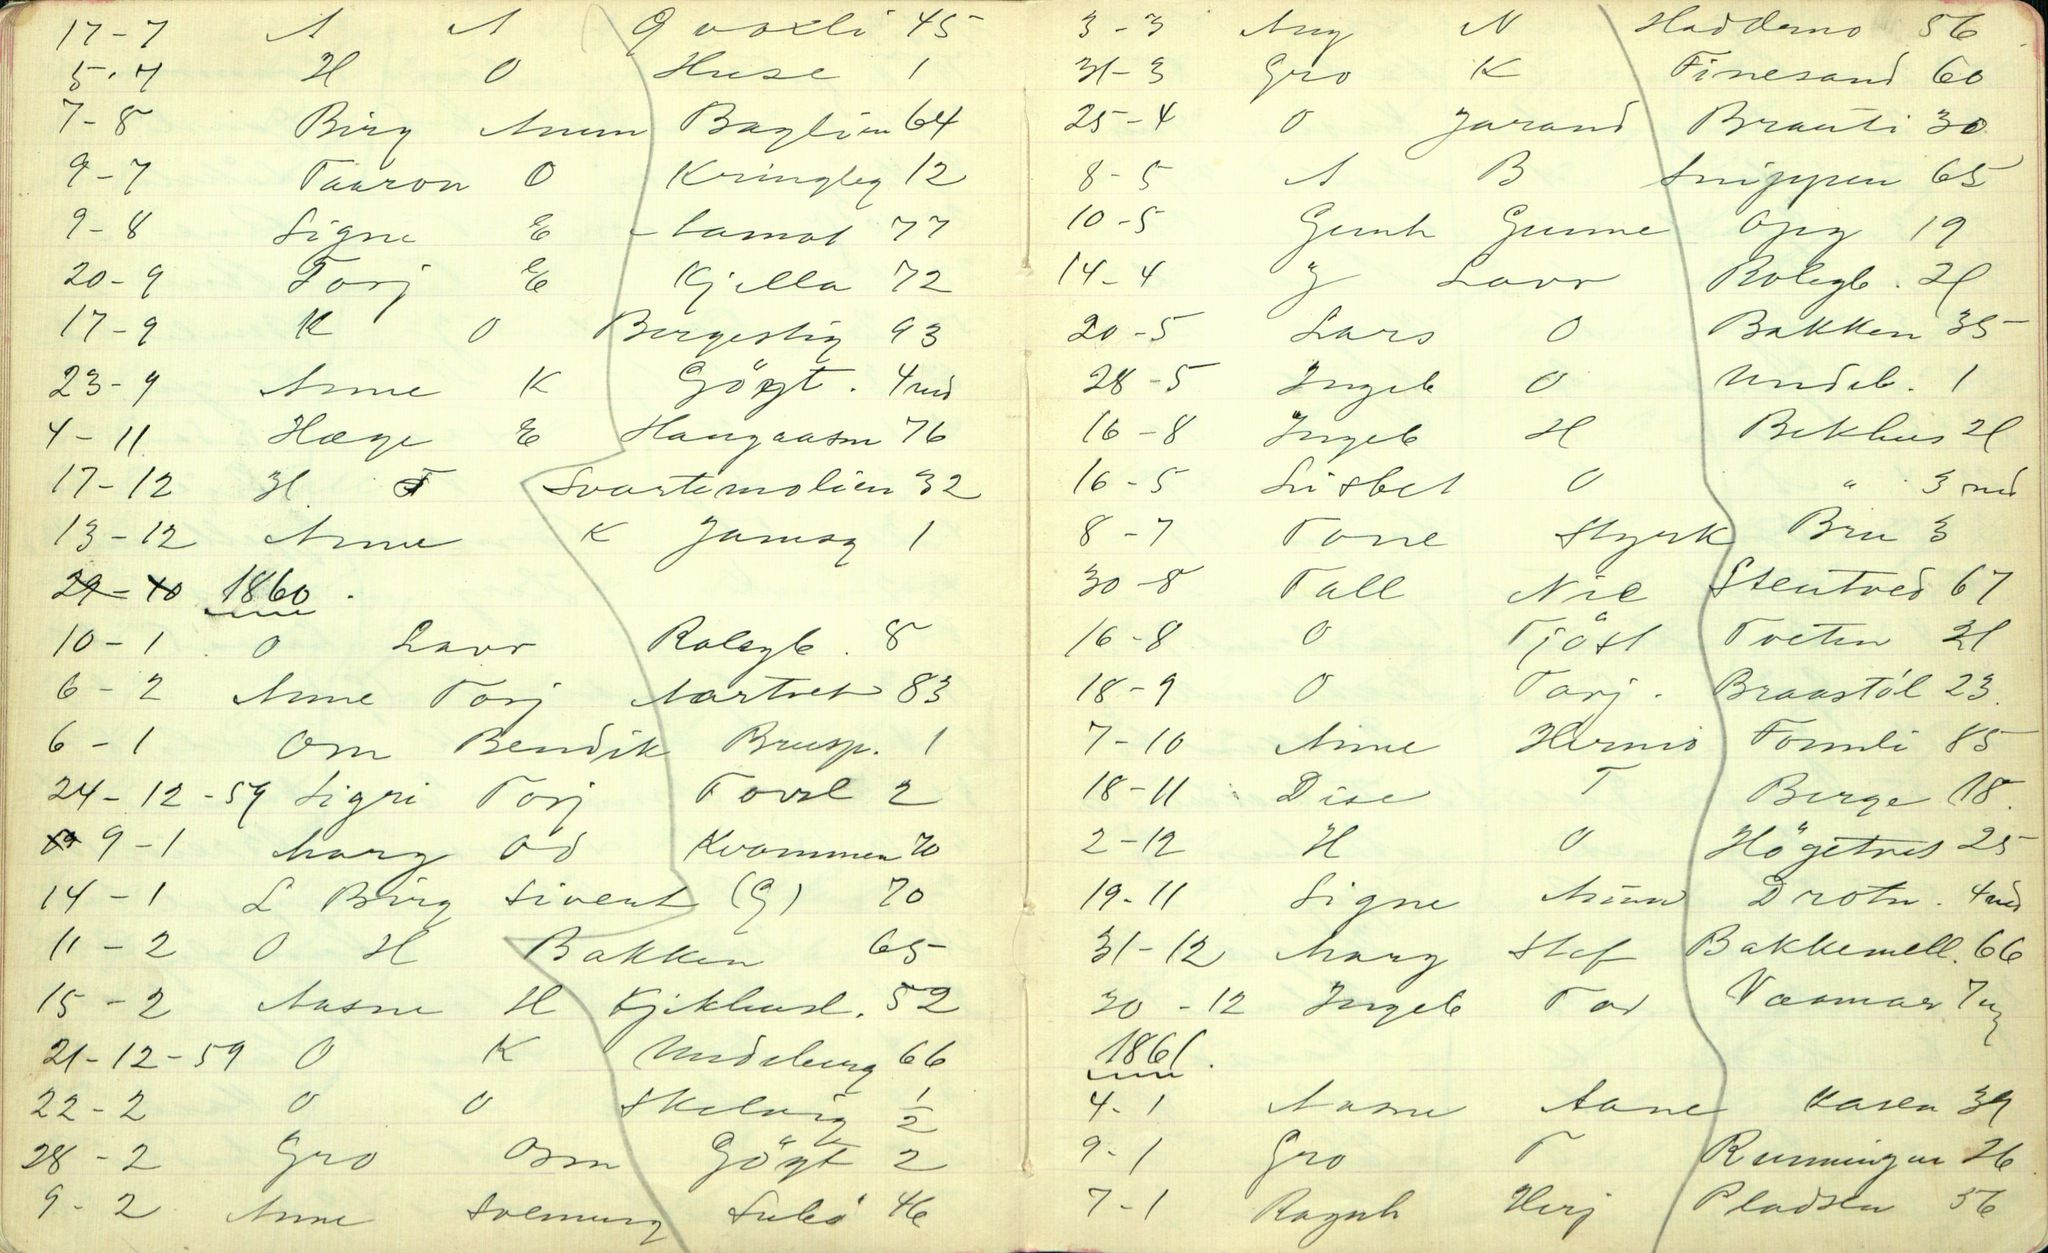 17-7 A A Qvaxli 45
5-7 H O Huse 1
7-8 Birg Anun Baglien 64
9-7 Taaron O Kringleg 12
9-8 Signe E 77
20-9 Torj E Kjilla 72
17-9 K O Bergestig 93
23-9 Anne K Göyt. 4 md
4-11 Hæge E Haugaasen 76
17-12 H T Svartemolien 32
13-12 Anne K Jamsg 1
29-10 1860.
10-1 O Lavr Rolegh. 8
6-2 Anne Torj Aartvet 83
6-1 Orm Bendik Brusp. 1
24-12-59 Sigri Torj Tovsl 2
9-1 Marg Od Kvammen 70
14-1 L Birg Sivert (G) 70
11-2 O H Bakken 65
15-2 Aasne H Kjikhusl. 52
21-12-59 O K Undeberg 66
22-2 O O Skelvig ½
28-2 Gro Orm Göyt 2
9-2 Anne Svenung Lubö 46
3-3 Ang N Haddemo 56
31-3 Gro K Finesand 60
25-4 O Jarand Brauti 30
8-5 A B Snippen 65
10-5 Gunh Gunne Opg 19
14-4 J Lavr Rolegh. 21
20-5 Lars O Bakken 35
28-5 Ingeb O Undeb. 1
16-8 Ingeb H Bekhus 21
16-5 Lisbet O " 3 md
8-7 Tone Styrk Bru 3
30-8 Tall Nil Stentved 67
16-8 O Tjöst Tveten 21
18-9 O Torj. Braastöl 23.
7-10 Anne Hermo Tomli 85
18-11 Dise T Berge 18.
2-12 H O Högetvet 25
19-11 Signe Anun Drotn. 4 md
31-12 Marg Stef Bakkemell. 66
30-12 Ingeb Tor Vaamar 7
1861.
4-1 Aasne Aane Aasen 39
9-1 Gro T Runningen 26
7-1 Ragnh Herj Pladsen 56